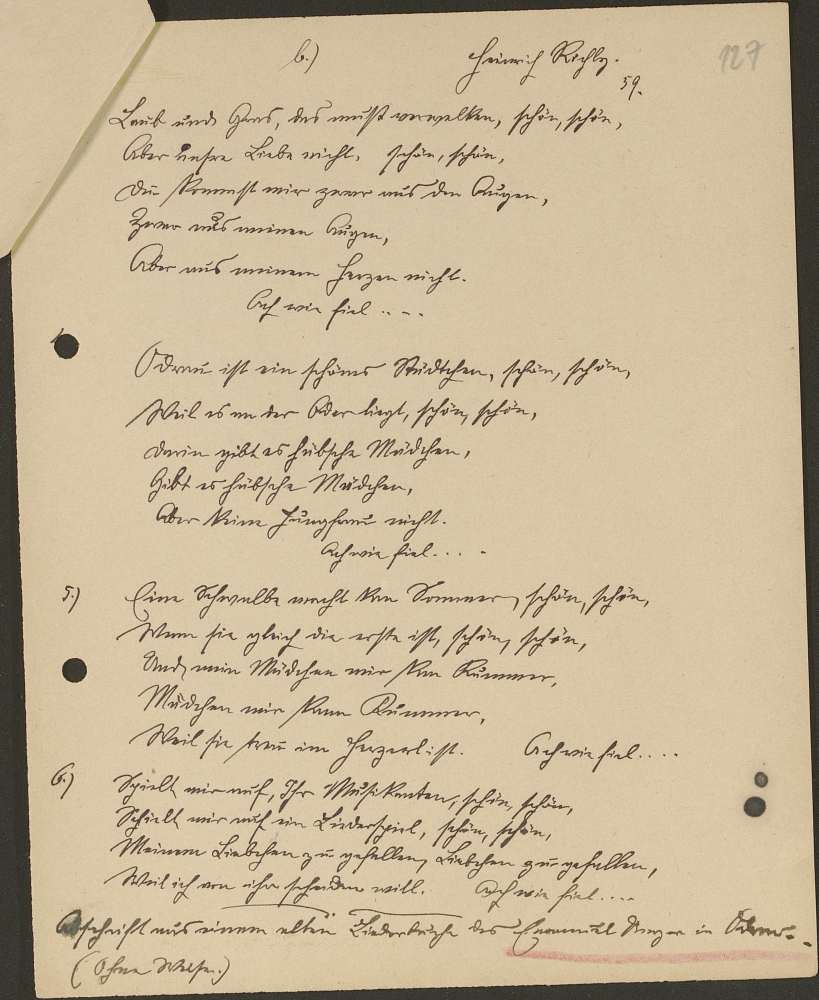 b.) Heinrich Richly. 127
59.
Laub und Gras, das muß verwelken, schön, schön,
Aber unsre Liebe nicht, schön, schön,
Du kommst mir zwar aus den Augen,
Zwar aus meinen Augen,
Aber aus meinem Herzen nicht.
Ach wie fiel ....
Odrau ist ein schönes Städtchen, schön, schön,
Weil es an der Oder liegt, schön, schön,
Darin gibt es hübsche Mädchen,
Gibt es hübsche Mädchen,
Aber keine Jungfrau nicht.
Ach wie fiel....
5.) Eine Schwalbe macht kan Sommer, schön, schön,
Wenn sie gleich die erste ist, schön, schön,
Und mein Mädchen mir kan Kummer,
Mädchen mir kann Kummer,
Weil sie treu im Herzerl ist. Ach wie fiel....
6.) Spielt mir auf, Ihr Musikanten, schön, schön,
Spielt mir auf ein Liederspiel, schön, schön,
Meinem Liebchen zu gefallen, Liebchen zu gefallen,
Weil ich von ihr scheiden will. Ach wie fiel....
Abschrift aus einem alten Liederbuche des Emanuel in Odrau.
(Ohne Weise.)